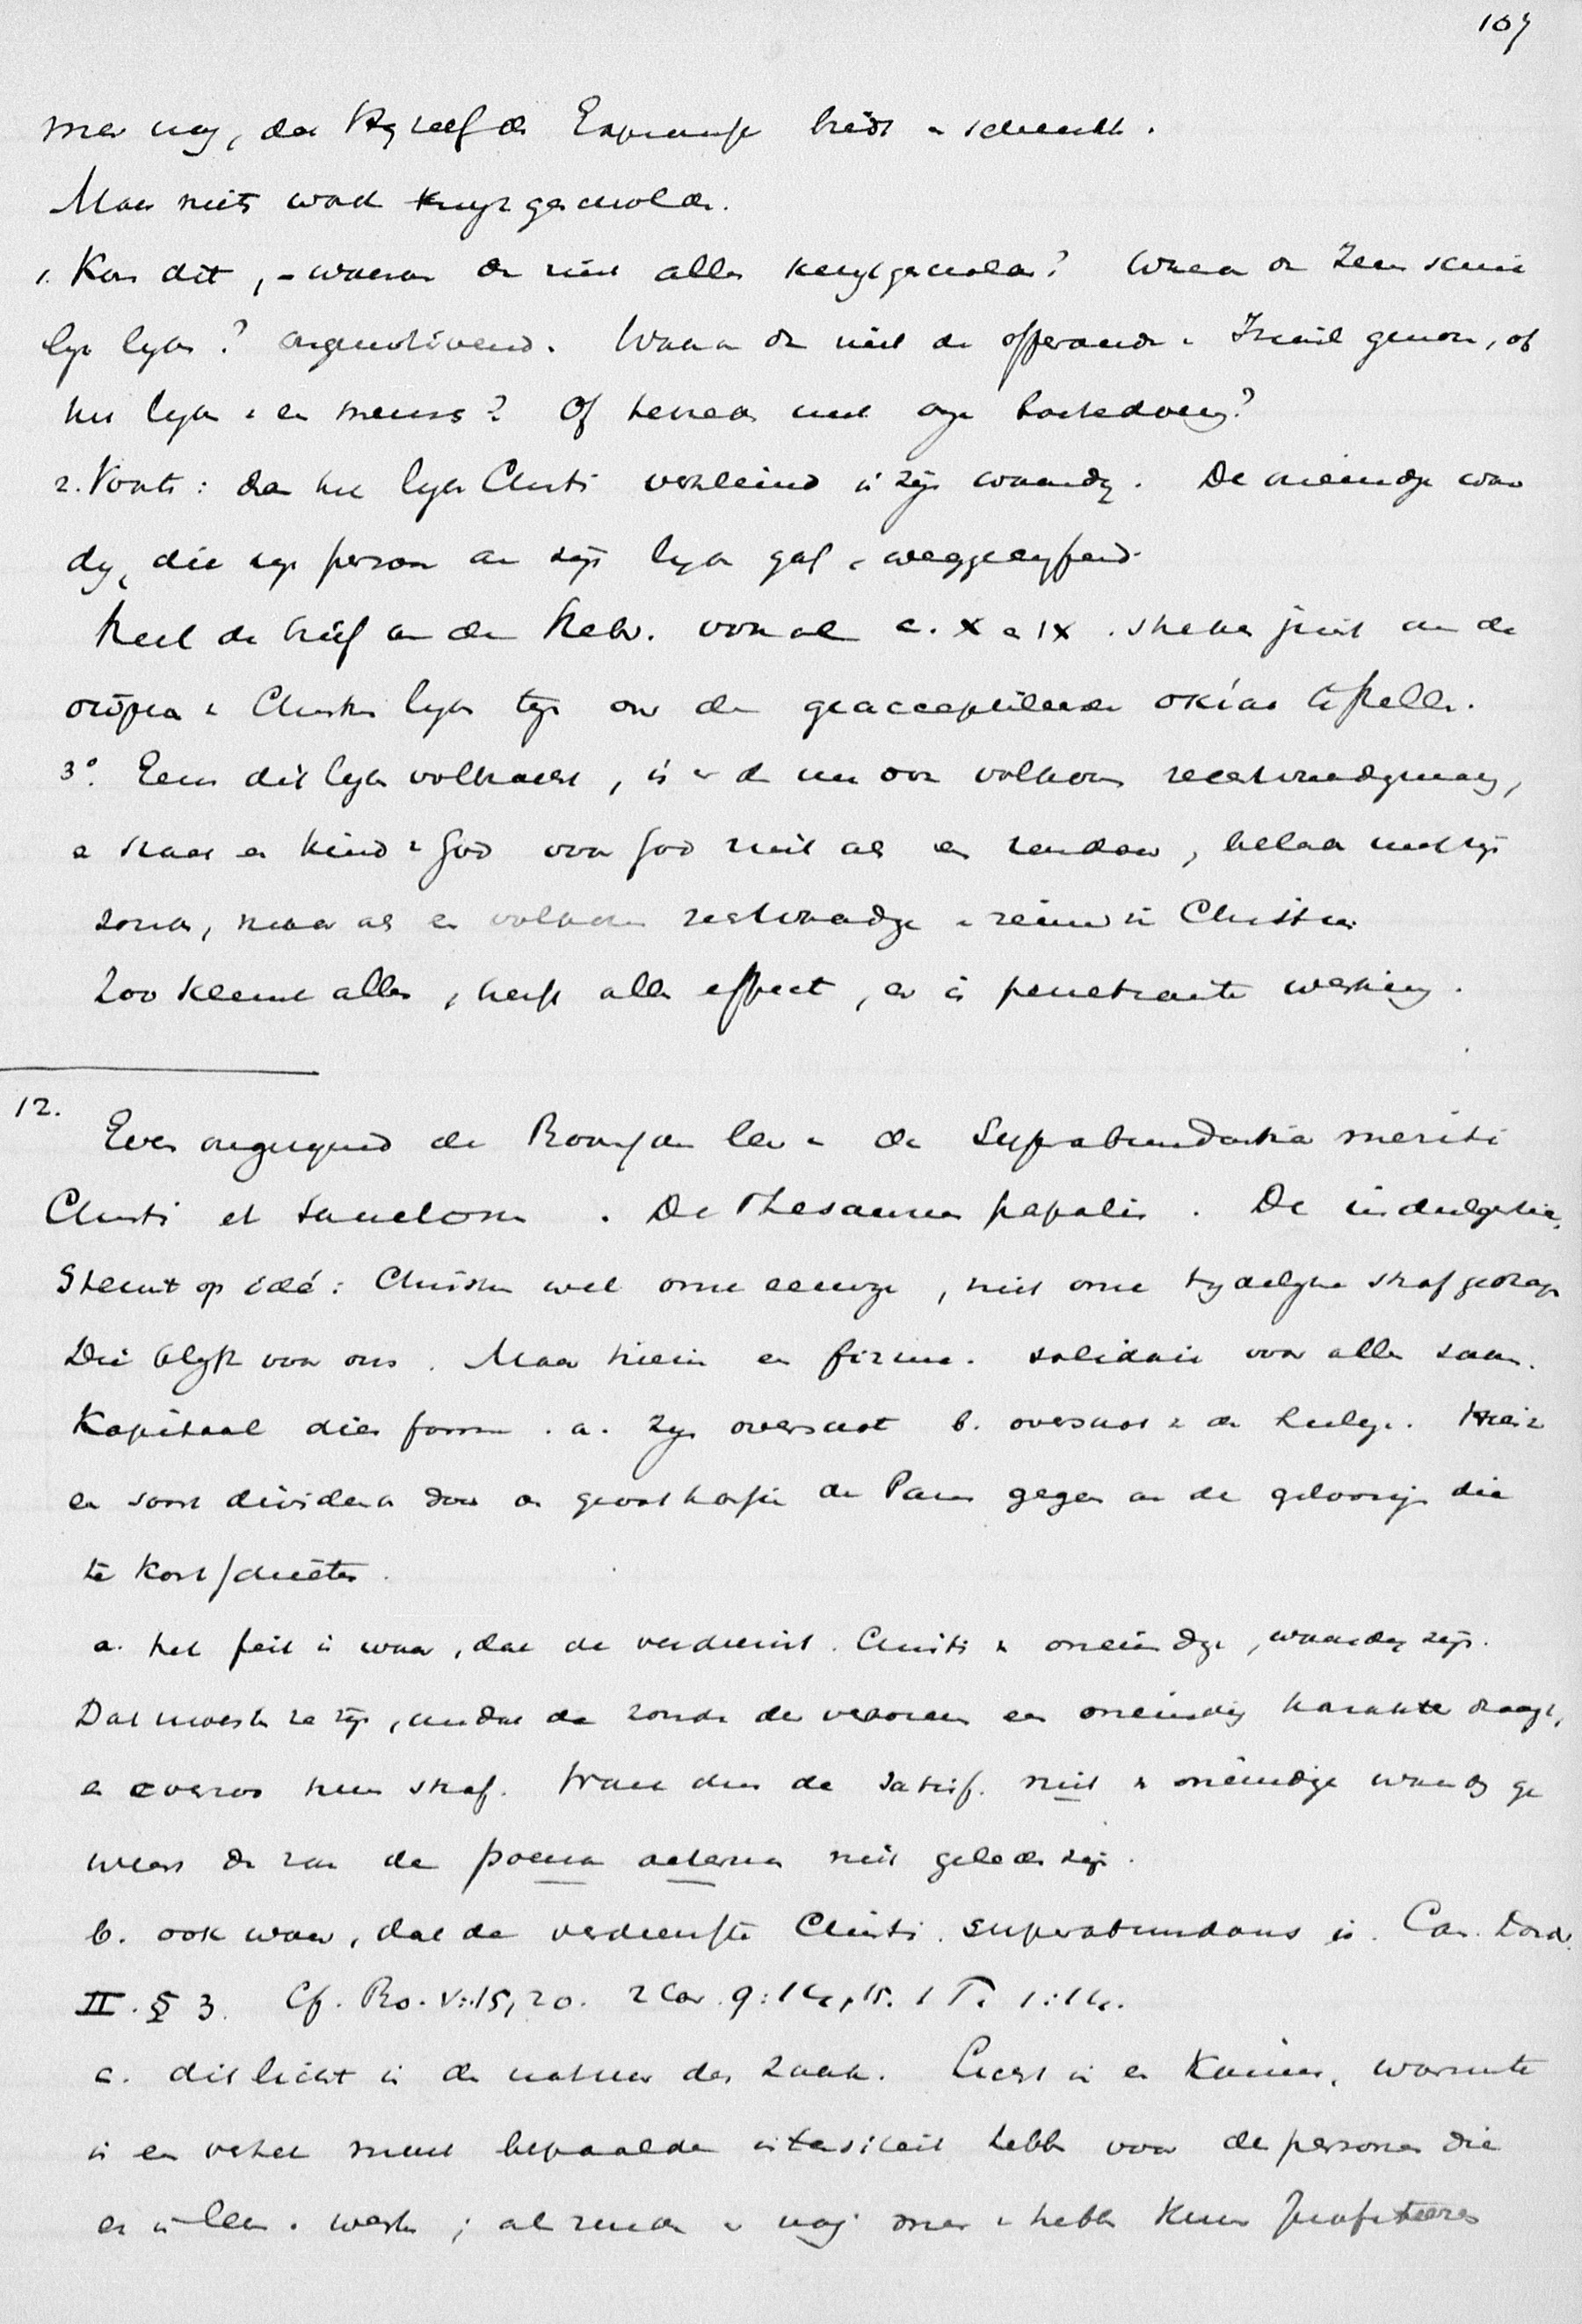 109
maar nog, dat Hy zelf de
Maar niets word kwytgescholden.
1. Kan dit, - waarom dan niet alles kwytgescholden? Waarom dan Zoen
lyk lyden? Waarom dan niet de offerande v. Israël genoeg, of
het lyden v. een mensch? Of
2. Voorts: dan het lyden Christi verkleind in zyn waardy. De oneindige waar
dy, die zyn persoon aan zyn lyden gaf, weggecyferd.
Heel de brief aan den Hebr. vooral c. X en IX. strekken juist om de
σωμα v. Christus lyden tegenover de geaccepteerde σκιαι te stellen.
3°. Eens dit lyden volbracht, is er dan nu ook volkomen rechtvaardigmaking,
en staat een kind v. God voor God niet als een zondaar, beladen met zyn
zonden, maar als een volkomen rechtvaardige en reine in Christus.
Zoo klemt alles, heeft alles effect, er is penetrante werking.
12.
Even ongerymd de Roomsche leer v. de Superabundantia meriti
Christi et Sanctorum. De Thesaurus papalis. De indulgentie.
Steunt op idé: Christus wel onze eeuwige, niet onze tydelyke straf gedragen
Die blyft voor ons. Maar hierin een firma. solidair voor allen saam.
Kapitaal dier firma. a. Zyn overschot b. overschot v. de heiligen. Hier v.
een soort dividend door de den Paus gegeven aan de geloovigen die
te kort schieten.
a. het feit is waar, dat de verdienst. Christi v. oneindige, waardy zyn.
Dat moesten ze zyn, omdat de zonde der verloren een oneindig karakter draagt,
en evenzoo hun straf. Ware dus de satisf. niet v. oneindige waardy ge
weest dan zou de poena aeterna niet geleden zyn.
b. ook waar, dat de verdienste Christi superabundans is. Can. Dord.
II. § 3. Cf. Ro. V:15, 20. 2 Cor. 9:14, 15. 1 Ti. 1:14.
c. dit licht in de natuur der zaak. Licht in een Kamer, warmte
in een vertrek moet bepaalde intensiteit hebben voor de personen die
er in lezen of werken; al zouden er nog meer v. hebben kunnen profiteeren